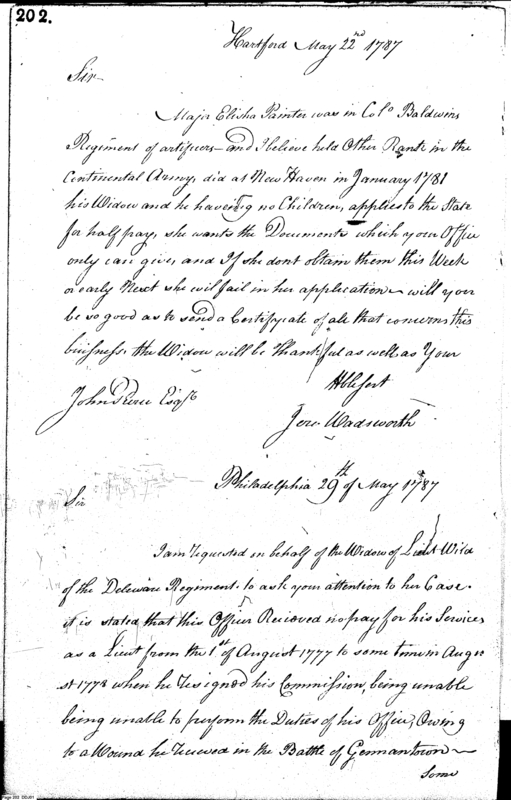 202.
Hartford May 22nd 1787
Sir
Major Elisha Painter was in Colo Baldwins
Regiment of artificers - and I believe held Other Rank in the
Continental Army, did at New Haven in January 1781
his Widow and he haveing no Children, applies to the State
for half pay, she wants the Documents which your Office
only can give, and If she dont obtain them this Week
or early Next she will fail in her application - will you
be so good as to send a Certificate of all that concerns this
buisness. the Widow will be thankful as well as Your
Hble sert
John Pierce Esqr
Jere. Wadsworth
Philadelphia 29th of May 1787
Sir
I am requested in behalf of the Widow of Lieut Wild
of the Deleware Regiment. to ask your attention to her Case.
it is stated that this Officer Recieved no pay for his Services
as a Lieut from the 1st of August 1777 to some time in Augu
st 1778 when he resigned his Commission, being unable
being unable to perform the Duties of his Office, Owing
to a Wound he received in the Battle of Germantown -
some